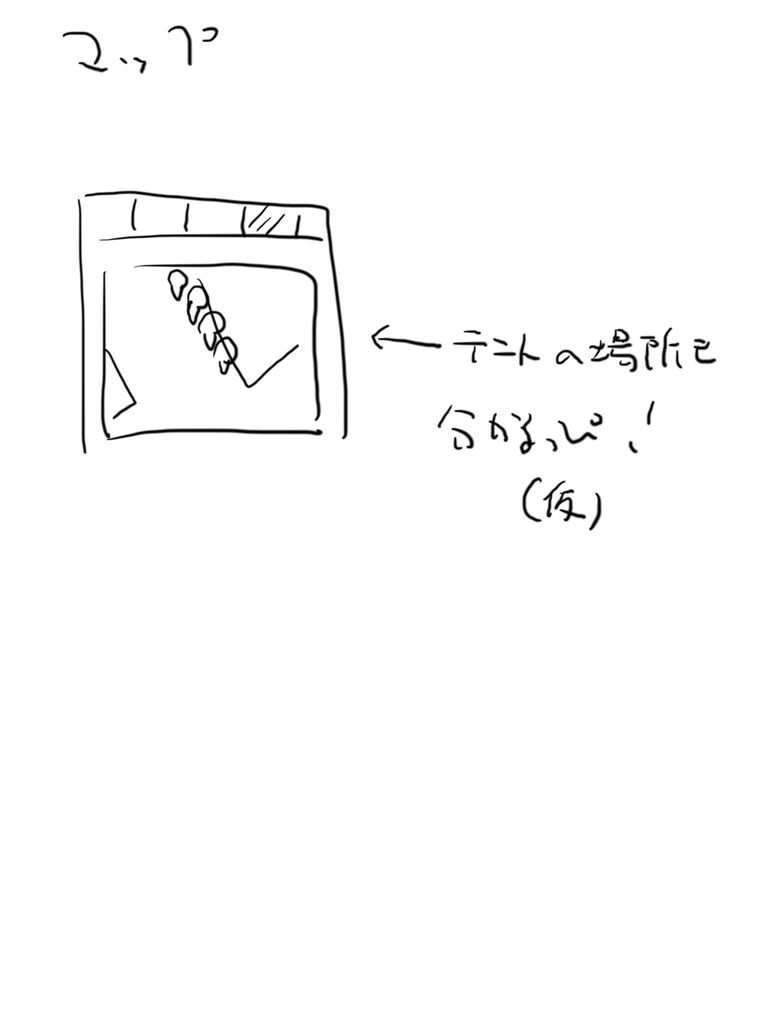 マップ
←テントの場所も
分かるっぴ!
(仮)